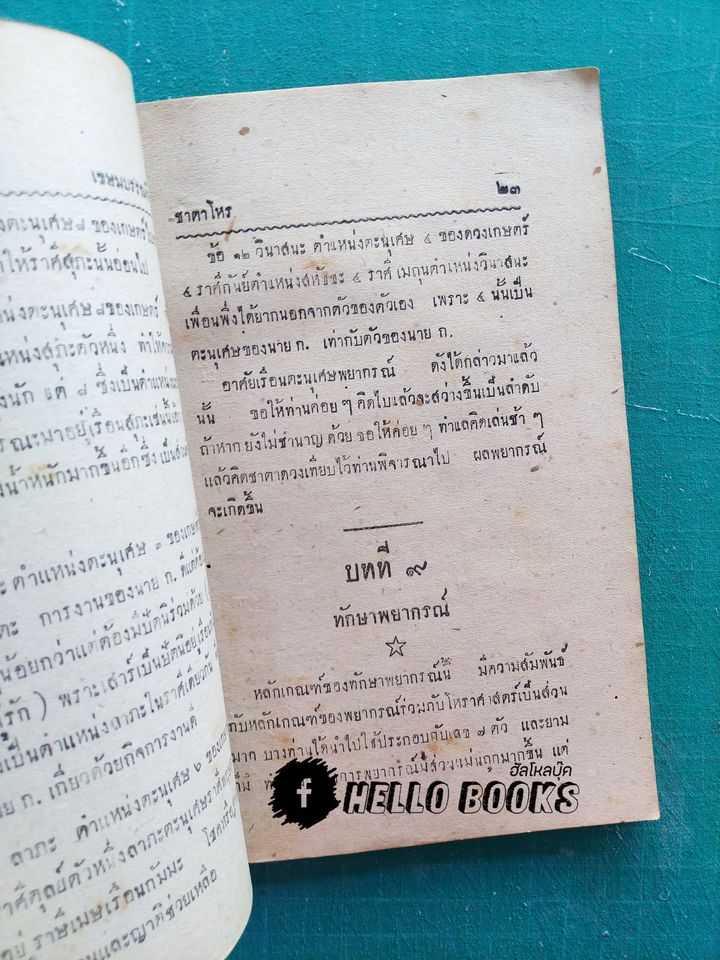 เรือนบรรณ
ตะนุเศษ ๘ ของเกษตร์
ให้ราศีสุภะนั้นอ่อนไป
ตะนุเศษ ๘ ของเกษตร์
แหน่งสุภะตัวหนึ่ง ทำให้
นัก แต่ ๘ ซึ่งเป็นตำแหน่ง
มาอยู่เรือนสุภะเช่นนี้
น้ำหนักมากขึ้นอีกซึ่ง เป็น
ตำแหน่งตะนุเศษ ๓ ของเกษตร
การงานของนาย ก. ดีแต่
น้อยกว่าแต่ต้องมีปัตนิร่วมด้วย
รัก) เพราะเสาร์เป็นปัตนิอยู่เรือน
เป็นตำแหน่งลาภะในราศีเดียวกัน
นาย ก. เกี่ยวด้วยกิจการงานดี
ลาภะ ตำแหน่งตะนุเศษ ๖ ของ
ราศีตุลย์ตัวหนึ่งลาภะตะนุเศษ
อยู่ ราษีเมษเรือนกัมมะ
และญาติช่วยเหลือ
ชาตาโหร ๒๓
ข้อ ๑๒ วินาสนะ ตำแหน่งตะนุเศษ ๔ ของดวงเกษตร์
๔ ราศีกันย์ตำแหน่งสหัชชะ ๔ ราศี เมถุนตำแหน่งวินาสนะ
เพื่อนพึ่งได้ยากนอกจากตัวของตัวเอง เพราะ ๔ นั้นเป็น
ตะนุเศษของนาย ก. เท่ากับตัวของนาย ก.
อาศัยเรือนตะนุเศษพยากรณ์ ดังได้กล่าวมาแล้ว
นั้น ขอให้ท่านค่อย ๆ คิดไปแล้วจะสว่างขึ้นเป็นลำดับ
ถ้าหาก ยังไม่ชำนาญ ด้วย ขอให้ค่อย ๆ ทำแลคิดเล่นช้า ๆ
แล้วคิดชาตาดวงเทียบไว้ท่านพิจารณาไป ผลพยากรณ์
จะเกิดขึ้น
บทที่ ๙
ทักษาพยากรณ์
หลักเกณฑ์ของทักษาพยากรณ์นี้ มีความสัมพันธ์
กับหลักเกณฑ์ของพยากรณ์ร่วมกับโหราศาสตร์เป็นส่วน
มาก บางท่านได้นำไปใช้ประกอบกับเลข ๗ ตัว และยาม
การพยากรณ์มีส่วนแม่นถูกมากขึ้น แต่
ฮัลโหลบุ๊ค
f HELLO BOOKS